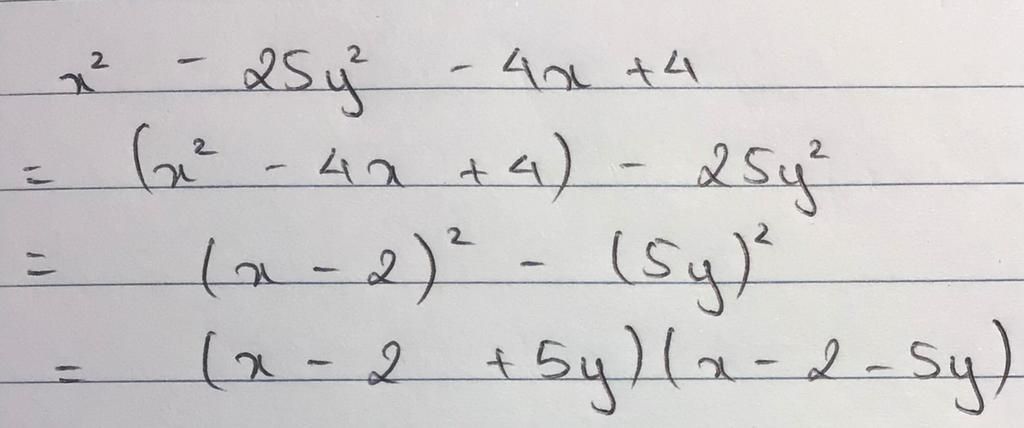 x² - 25y² - 4x + 4
= (x² - 4x + 4) - 25y²
= (x - 2)² - (5y)²
= (x - 2 + 5y)(x - 2 - 5y)